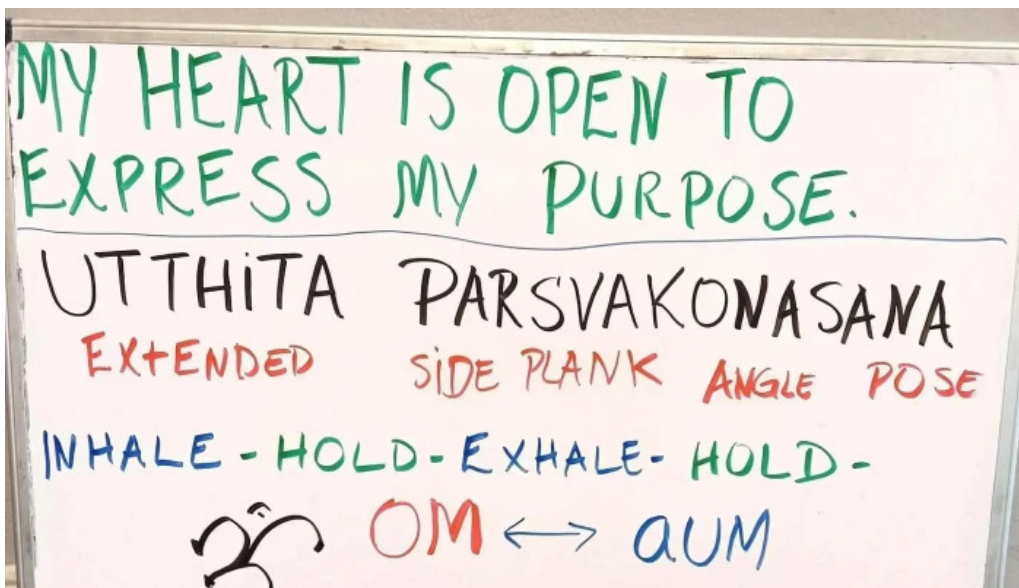 MY HEART IS OPEN TO
EXPRESS MY PURPOSE.
UTTHiTA PARSVAKONASANA
EXtENDED SiDE PLANK ANGLE POSE
INHALE - HOLD - EXHALE - HOLD -
ॐ OM ↔ aUM